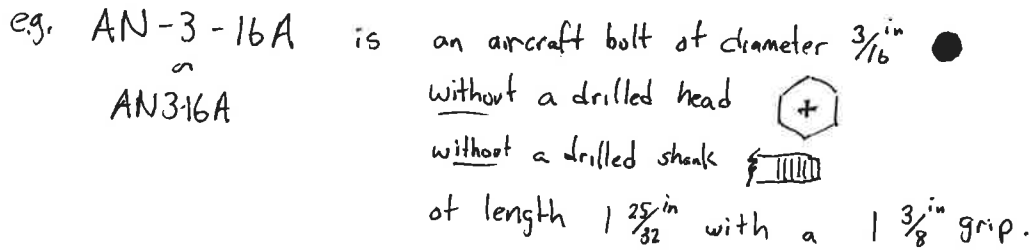 e.g. AN-3-16A is an aircraft bolt of diameter 3/16 in
or
AN3-16A without a drilled head
without a drilled shank
of length 1 25/32 in with a 1 3/8 in grip.